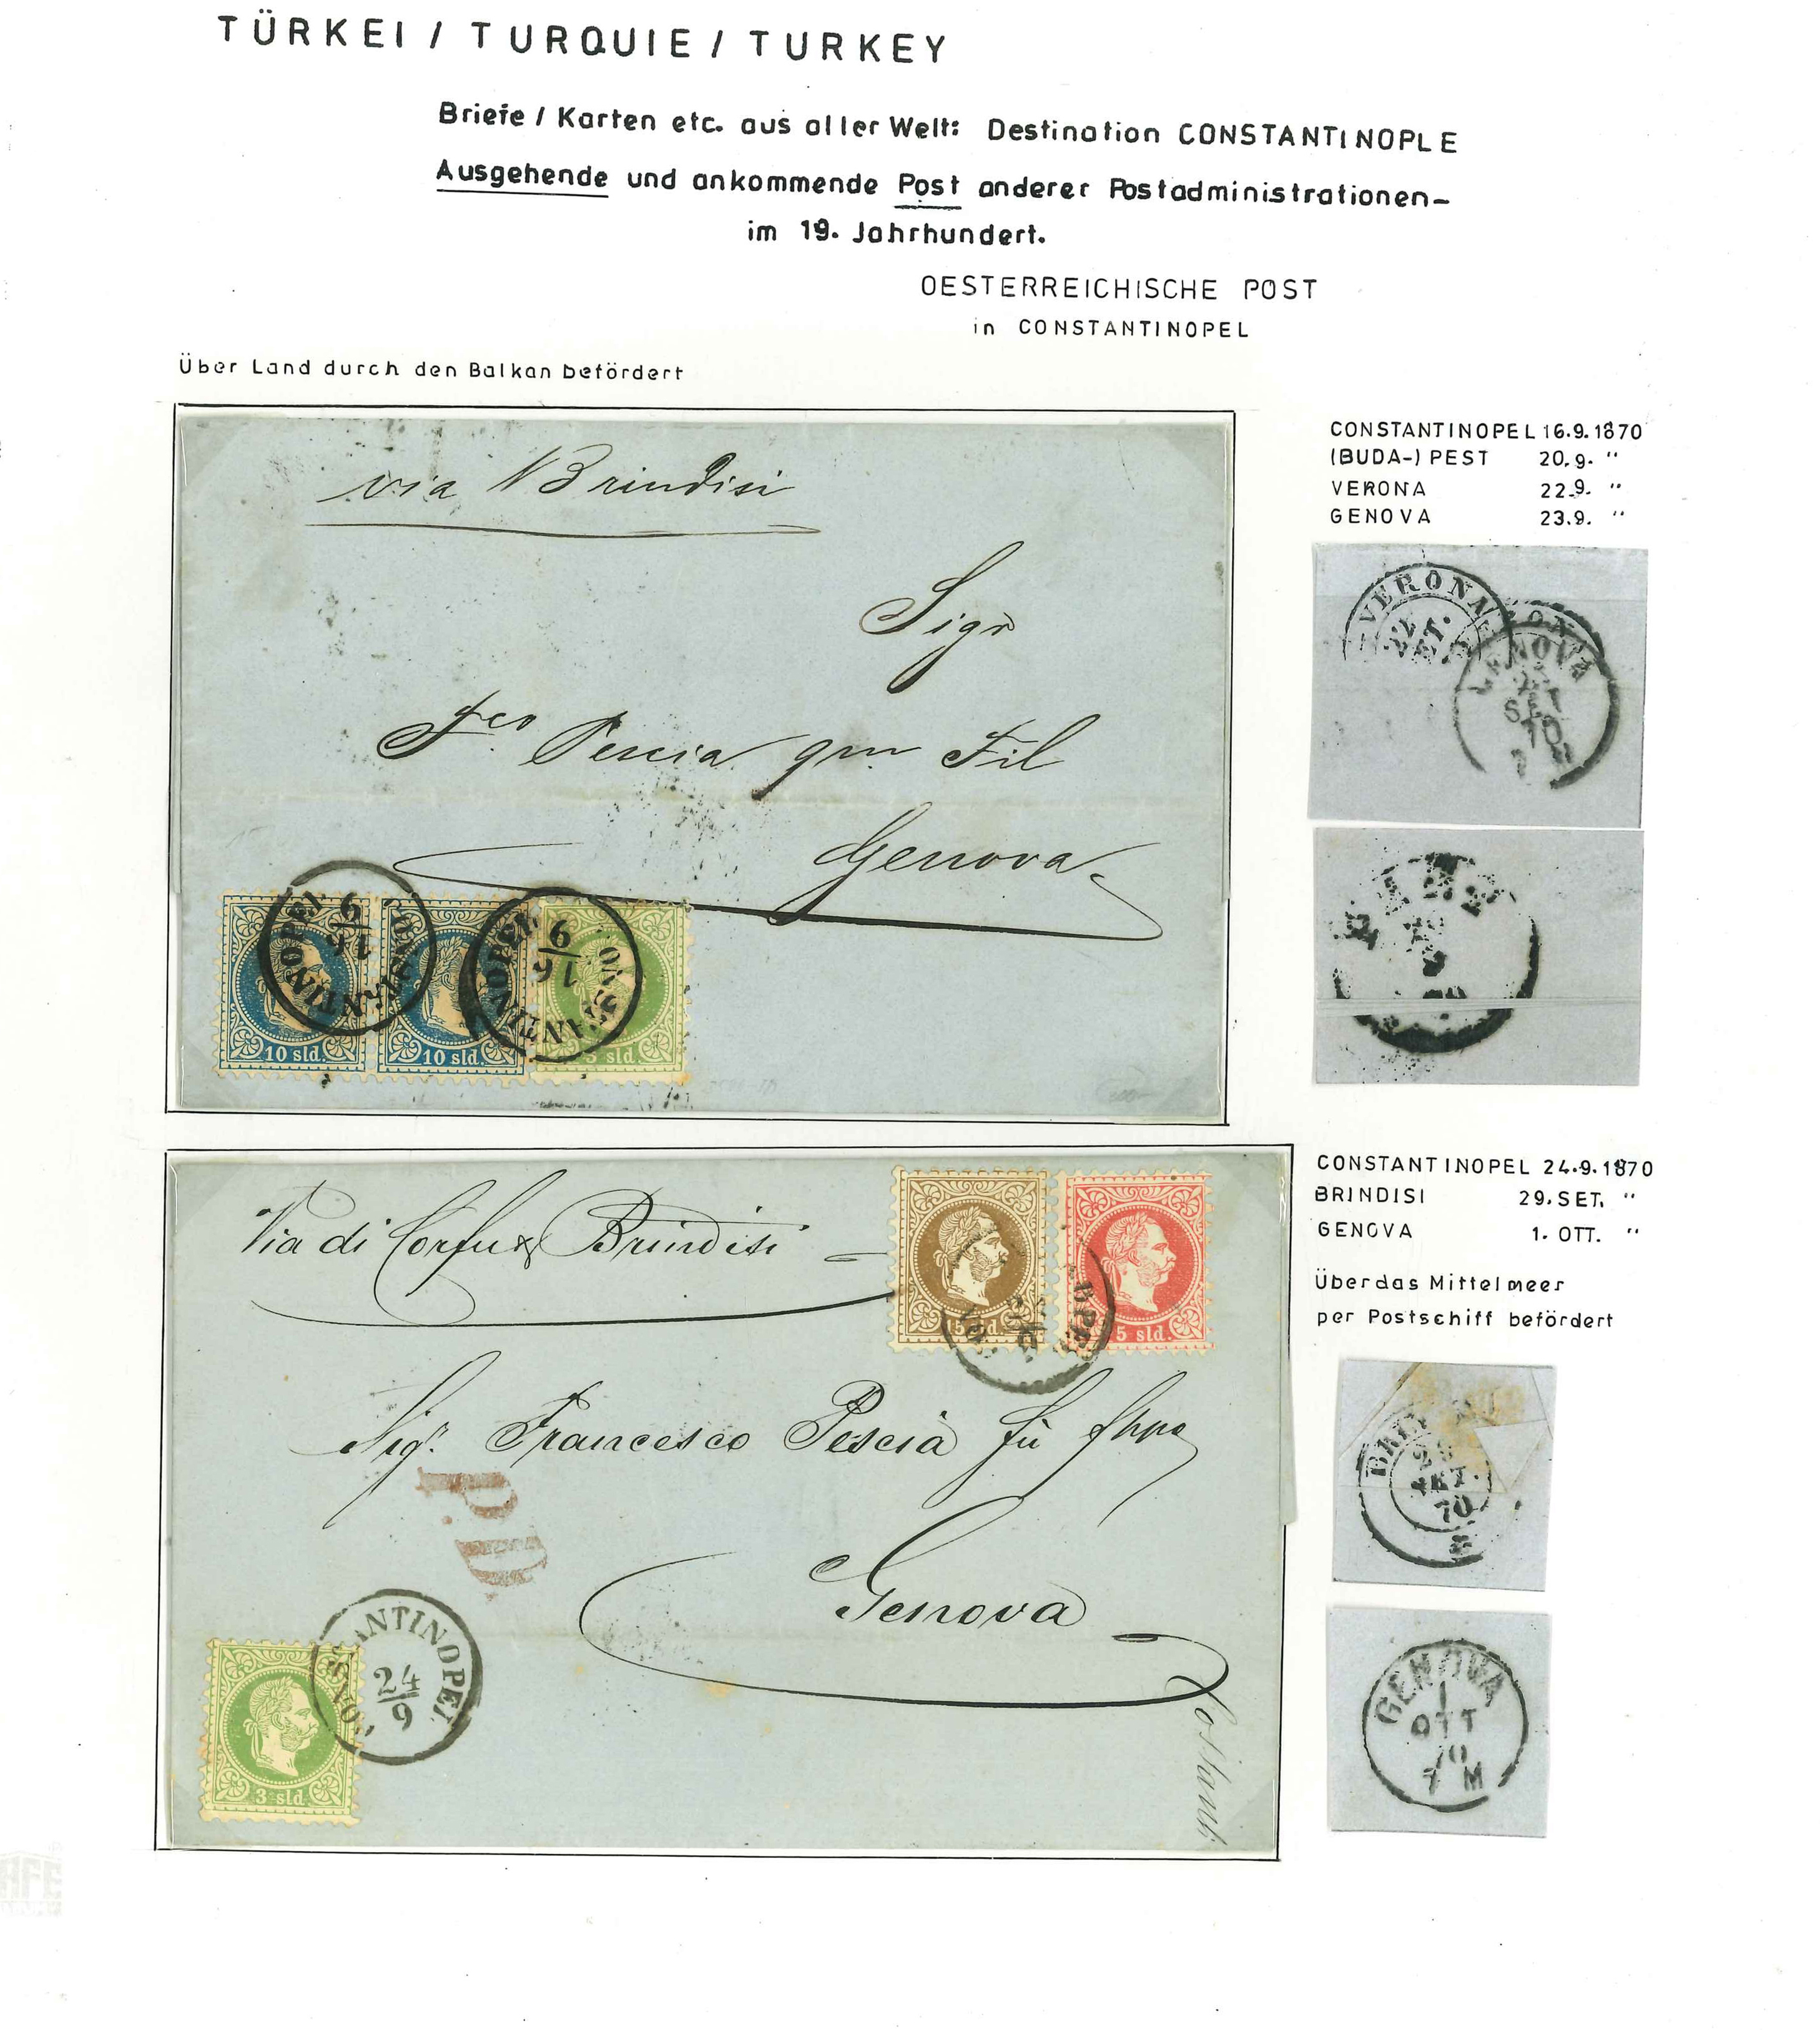 TÜRKEI / TURQUIE / TURKEY
Briefe / Karten etc. aus aller Welt: Destination CONSTANTINOPLE
Ausgehende und ankommende Post anderer Postadministrationen-
im 19. Jahrhundert.
OESTERREICHISCHE POST
in CONSTANTINOPEL
Über Land durch den Balkan befördert
via Brindisi
Sigr
Fco Pescia qm Fil
Genova
10 sld.
10 sld.
3 sld.
CONSTANTINOPEL
16
9
CONSTANTINOPEL
16
9
CONSTANTINOPEL 16.9.1870
(BUDA-) PEST 20.9. "
VERONA 22.9. "
GENOVA 23.9. "
VERONA
22
SET.
GENOVA
SET
Via di Corfu & Brindisi
15 sld.
5 sld.
Sigr. Francesco Pescia fù
Genova
P.D.
CONSTANTINOPEL
24
9
3 sld.
CONSTANTINOPEL 24.9.1870
BRINDISI 29.SET. "
GENOVA 1. OTT. "
Über das Mittelmeer
per Postschiff befördert
BRINDISI
29
SET.
70
GENOVA
1
OTT
70
7 M